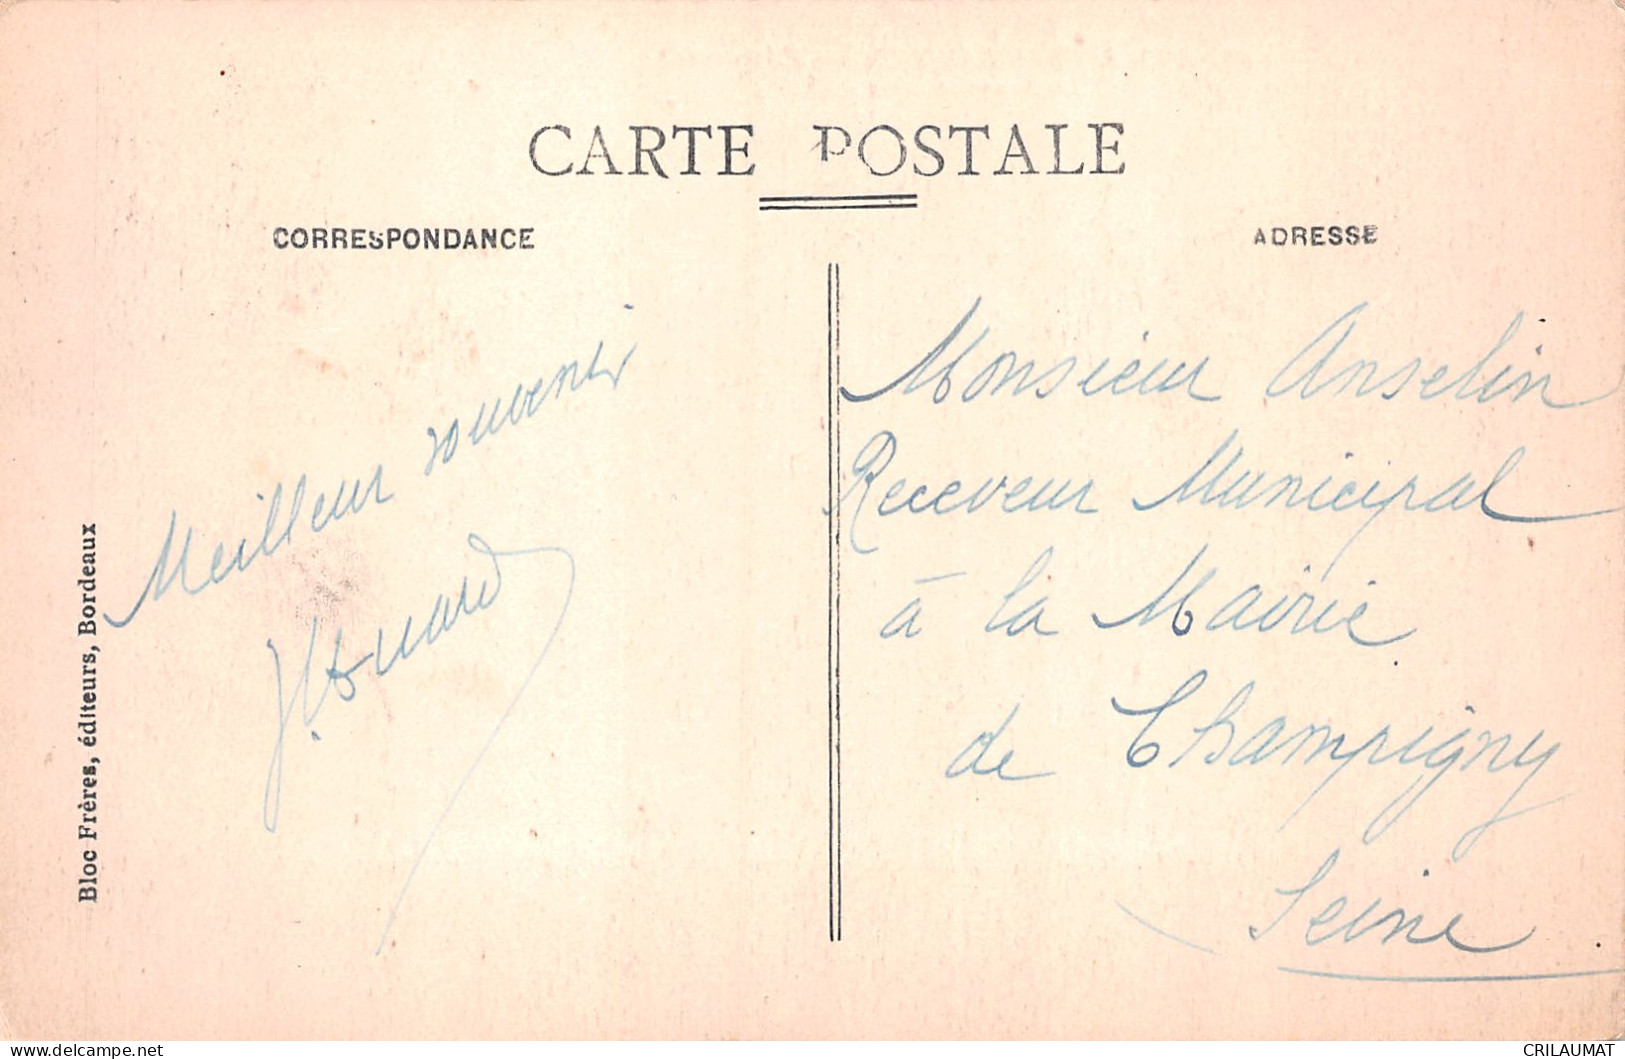 CARTE POSTALE
CORRESPONDANCE
ADRESSE
Meilleur souvenir
Monsieur Anselin
Receveur Municipal
à la Mairie
de Champigny
Seine
Bloc Frères, éditeurs, Bordeaux
www.delcampe.net
CRILAUMAT